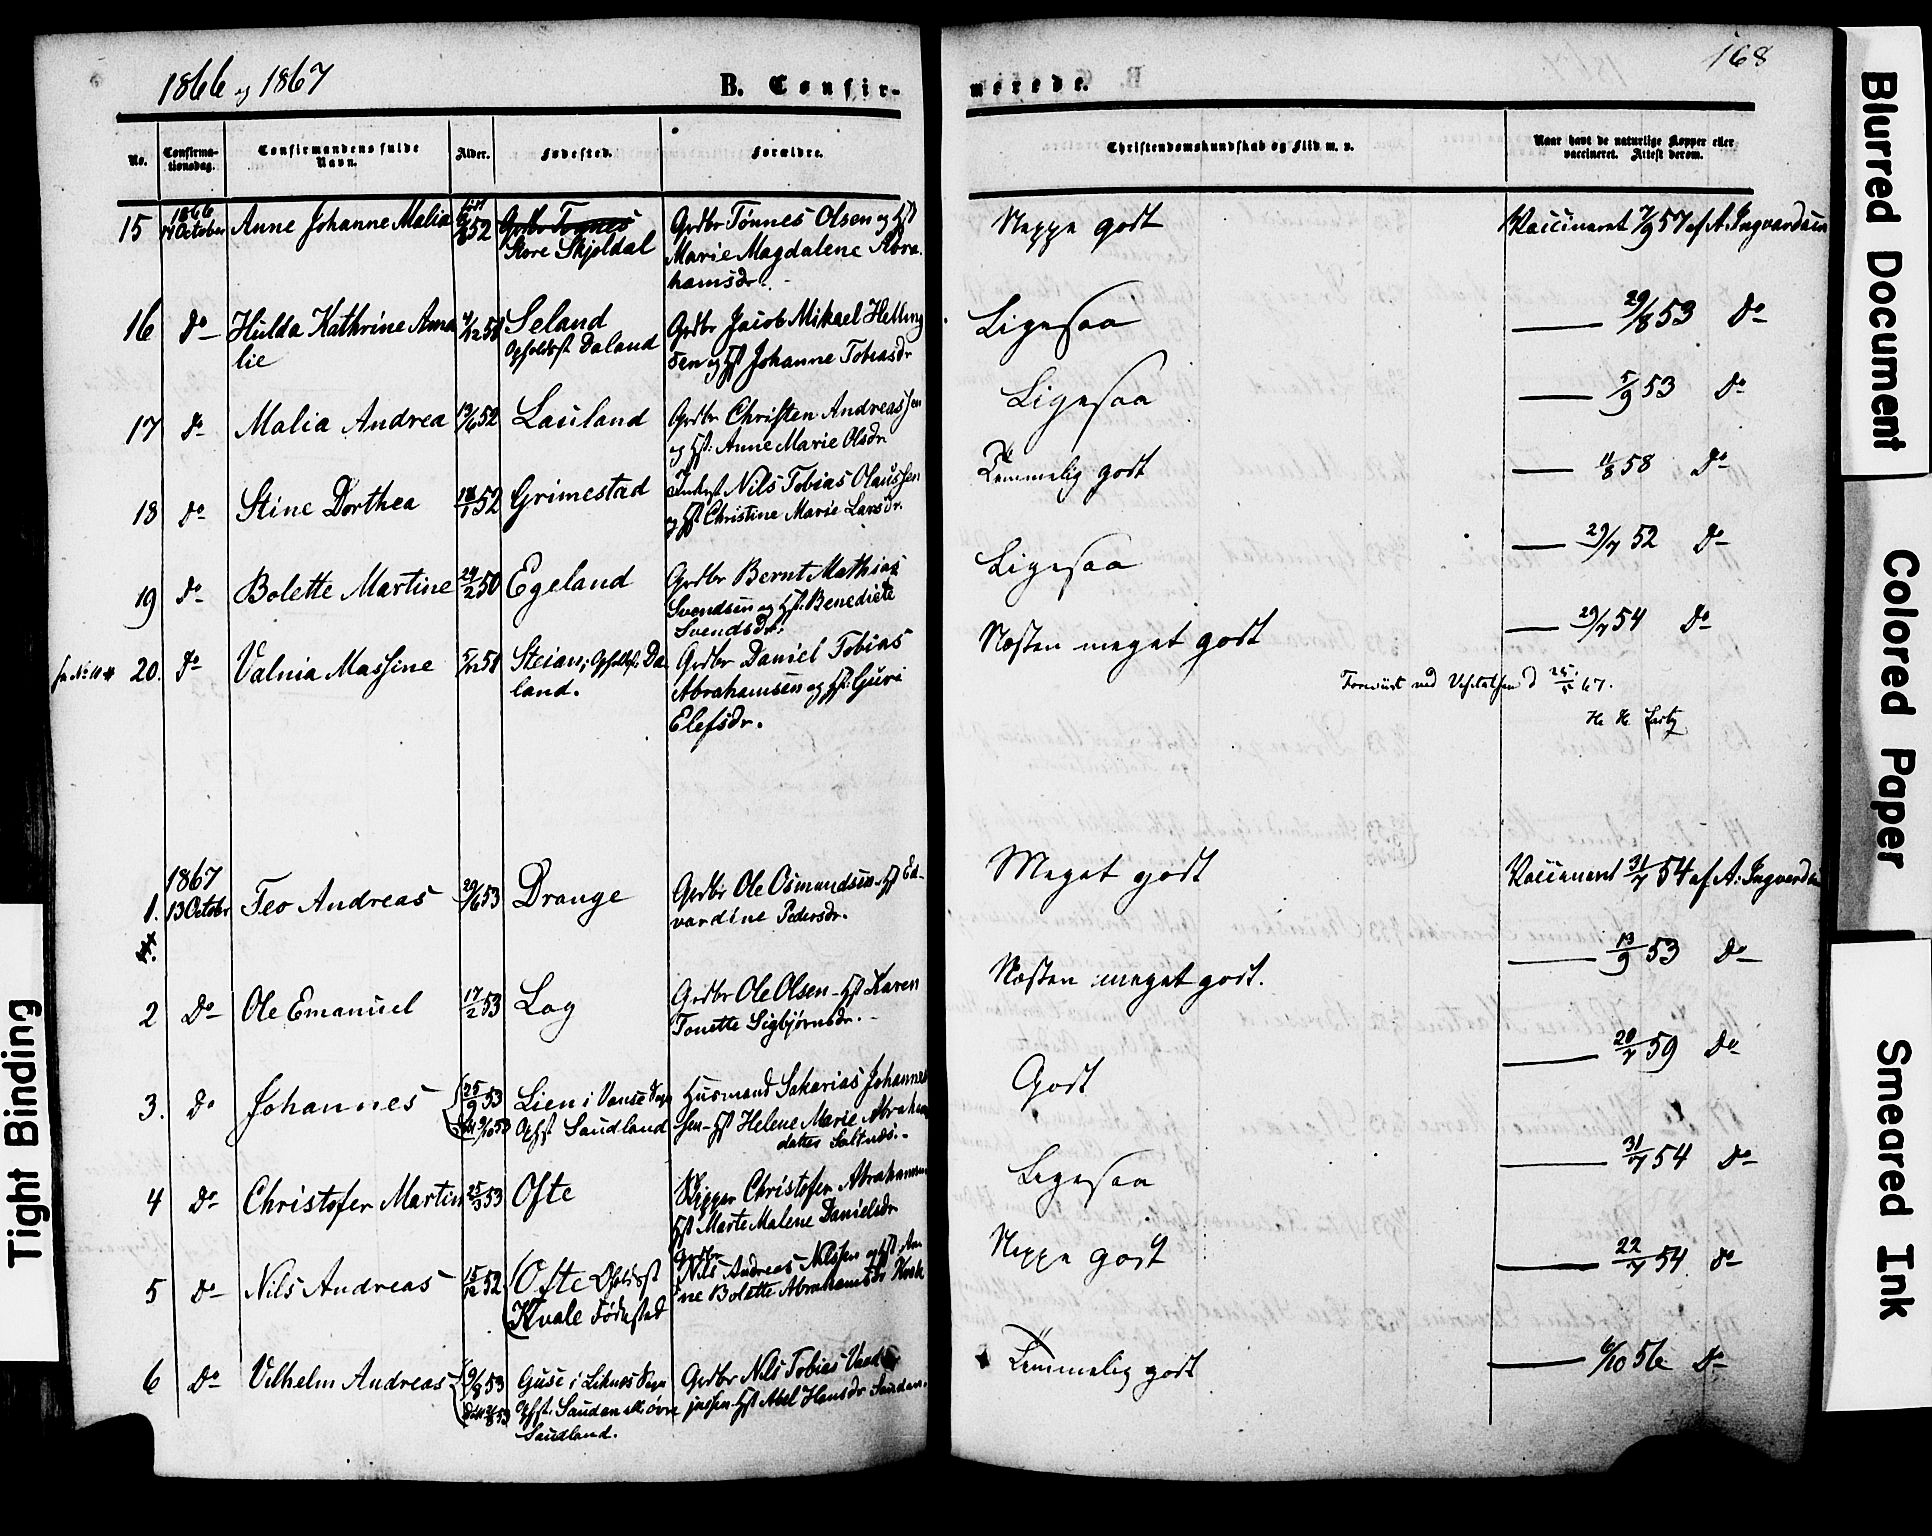 1866 og 1867
B. Confir-
merede.
168
No.
Confirma-
tionsdag.
Confirmandens fulde
Navn.
Alder.
Fødested.
Forældre.
Christendomskundskab og Flid m. v.
Naar havt de naturlige Kopper eller
vaccineret. Attest derom.
15 1866 14 October Anne Johanne Malia 52 Store Skjoldal Grdbr Tønnes Olsen og Hst
Marie Magdalene Abra-
hamsdr.
Neppe godt Vaccineret 7/9 57 af A. Ingvardsen
16 Do Hulda Kathrine Ama
lie
Seland
Opholdsst Daland
Grdbr Jacob Mikael Helling
sen og Hst Johanne Tobiasdr
Ligesaa 29/8 53 Do
17 Do Malia Andrea 13/6 52 Lauland Grdbr Christen Andreassen
og Hst: Anne Marie Olsdr
Ligesaa 5/9 53 Do
18 Do Stine Dorthea 52 Grimestad Nils Tobias Olaussen
og Hst Christine Marie Larsdr.
Temmelig godt 11/8 58 Do
19 Do Bolette Martine 24/2 50 Egeland Grdbr Bernt Mathias
Svendsen og Hst: Benedicte
Svendsdr:
Ligesaa 29/7 52 Do
20. Do Valnia Massine 5/12 51 Steian, Da
land.
Grdbr Daniel Tobias
Abrahamsen og Hst: Guri
Elefsdr.
Næsten meget godt 29/7 54 Do
67.
1. 1867 13 Octobr Teo Andreas 29/6 53 Drange Grdbr Ole Osmundsen Hst Ed-
vardine Pedersdr.
Meget godt Vaccineret 31/7 54 af A. Ingvardsen
2 Do Ole Emanuel 17/2 53 Log Grdbr Ole Olsen - Hst Karen
Tonette Sigbjørnsdr.
Næsten meget godt. 13/9 53 Do
3. Do Johannes 25/9 53 Lien i Vanse Sogn
Opst Saudland
Husmand Sakarias Johannes
sen - Hst Helene Marie Abraham
datter Saltnes.
Godt 20/7 59 Do
4 Do Christofer Martin 25/3 53 Ofte Skipper Christofer Abrahamsen
Hst Marte Malene Danielsdr
Ligesaa 31/7 54 Do
5 Do Nils Andreas 52 Ofte
Kvale Fødested
Grdbr
Nils Andreas Nilssen og Hst An
ne Bolette Abrahamsdr
Neppe godt 22/7 54 do
6 Do Vilhelm Andreas 9/8 53 Guse i Liknes Sogn
Opst. Saudan ell. øvre
Saudland.
Grdbr Nils Tobias
Hst Abel Hansdr Saudan.
Temmelig godt 6/10 56 Do
Blurred Document
Colored Paper
Smeared Ink
Tight Binding